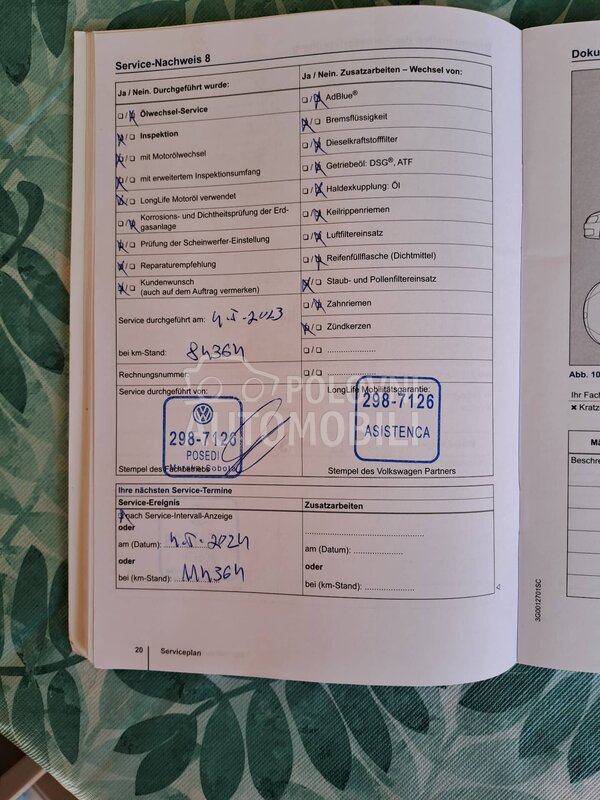 Service-Nachweis 8
Ja / Nein. Durchgeführt wurde:
Ölwechsel-Service
Inspektion
mit Motorölwechsel
mit erweitertem Inspektionsumfang
LongLife Motoröl verwendet
Korrosions- und Dichtheitsprüfung der Erd-
gasanlage
Prüfung der Scheinwerfer-Einstellung
Reparaturempfehlung
Kundenwunsch
(auch auf dem Auftrag vermerken)
Service durchgeführt am: 4.I-2023
bei km-Stand: 84364
Rechnungsnummer:
Service durchgeführt von:
298-7126
POSEDI
Stempel des Fachbetriebs
Ja / Nein. Zusatzarbeiten – Wechsel von:
AdBlue®
Bremsflüssigkeit
Dieselkraftstofffilter
Getriebeöl: DSG®, ATF
Haldexkupplung: Öl
Keilrippenriemen
Luftfiltereinsatz
Reifenfüllflasche (Dichtmittel)
Staub- und Pollenfiltereinsatz
Zahnriemen
Zündkerzen
LongLife Mobilitätsgarantie:
298-7126
ASISTENCA
Stempel des Volkswagen Partners
POLOVNI
AUTOMOBILI
Ihre nächsten Service-Termine
Service-Ereignis
nach Service-Intervall-Anzeige
oder
am (Datum): 4.I-2024
oder
bei (km-Stand): 114364
Zusatzarbeiten
am (Datum):
oder
bei (km-Stand):
20
Serviceplan
3G0012701SC
Doku
Abb. 10
Ihr Fach
Kratz
Beschre